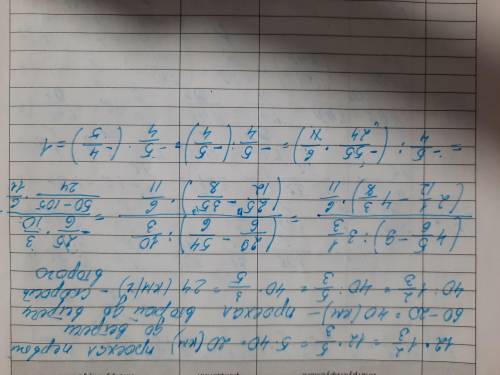 12 · 1 2/3 = 12 · 5/3 = 5·40 = 20 (км) проехал первый
до встречи
60-20=40 (км) – проехал второй до встречи
40 : 1 2/3 = 40 : 5/3 = 40 · 3/5 = 24 (км/ч) – скорость
второго
(4 5/6 - 9) : 3 1/3 / (2 1/12 - 4 3/8) · 6/11 = (29/6 - 54/6) : 10/3 / (25/12 - 35/8) · 6/11 = -25/6 · 3/10 / 50-105/24 · 6/11
= -5/4 : (-55/24 · 6/11) = -5/4 : (-5/4) = -5/4 · (-4/5) = 1